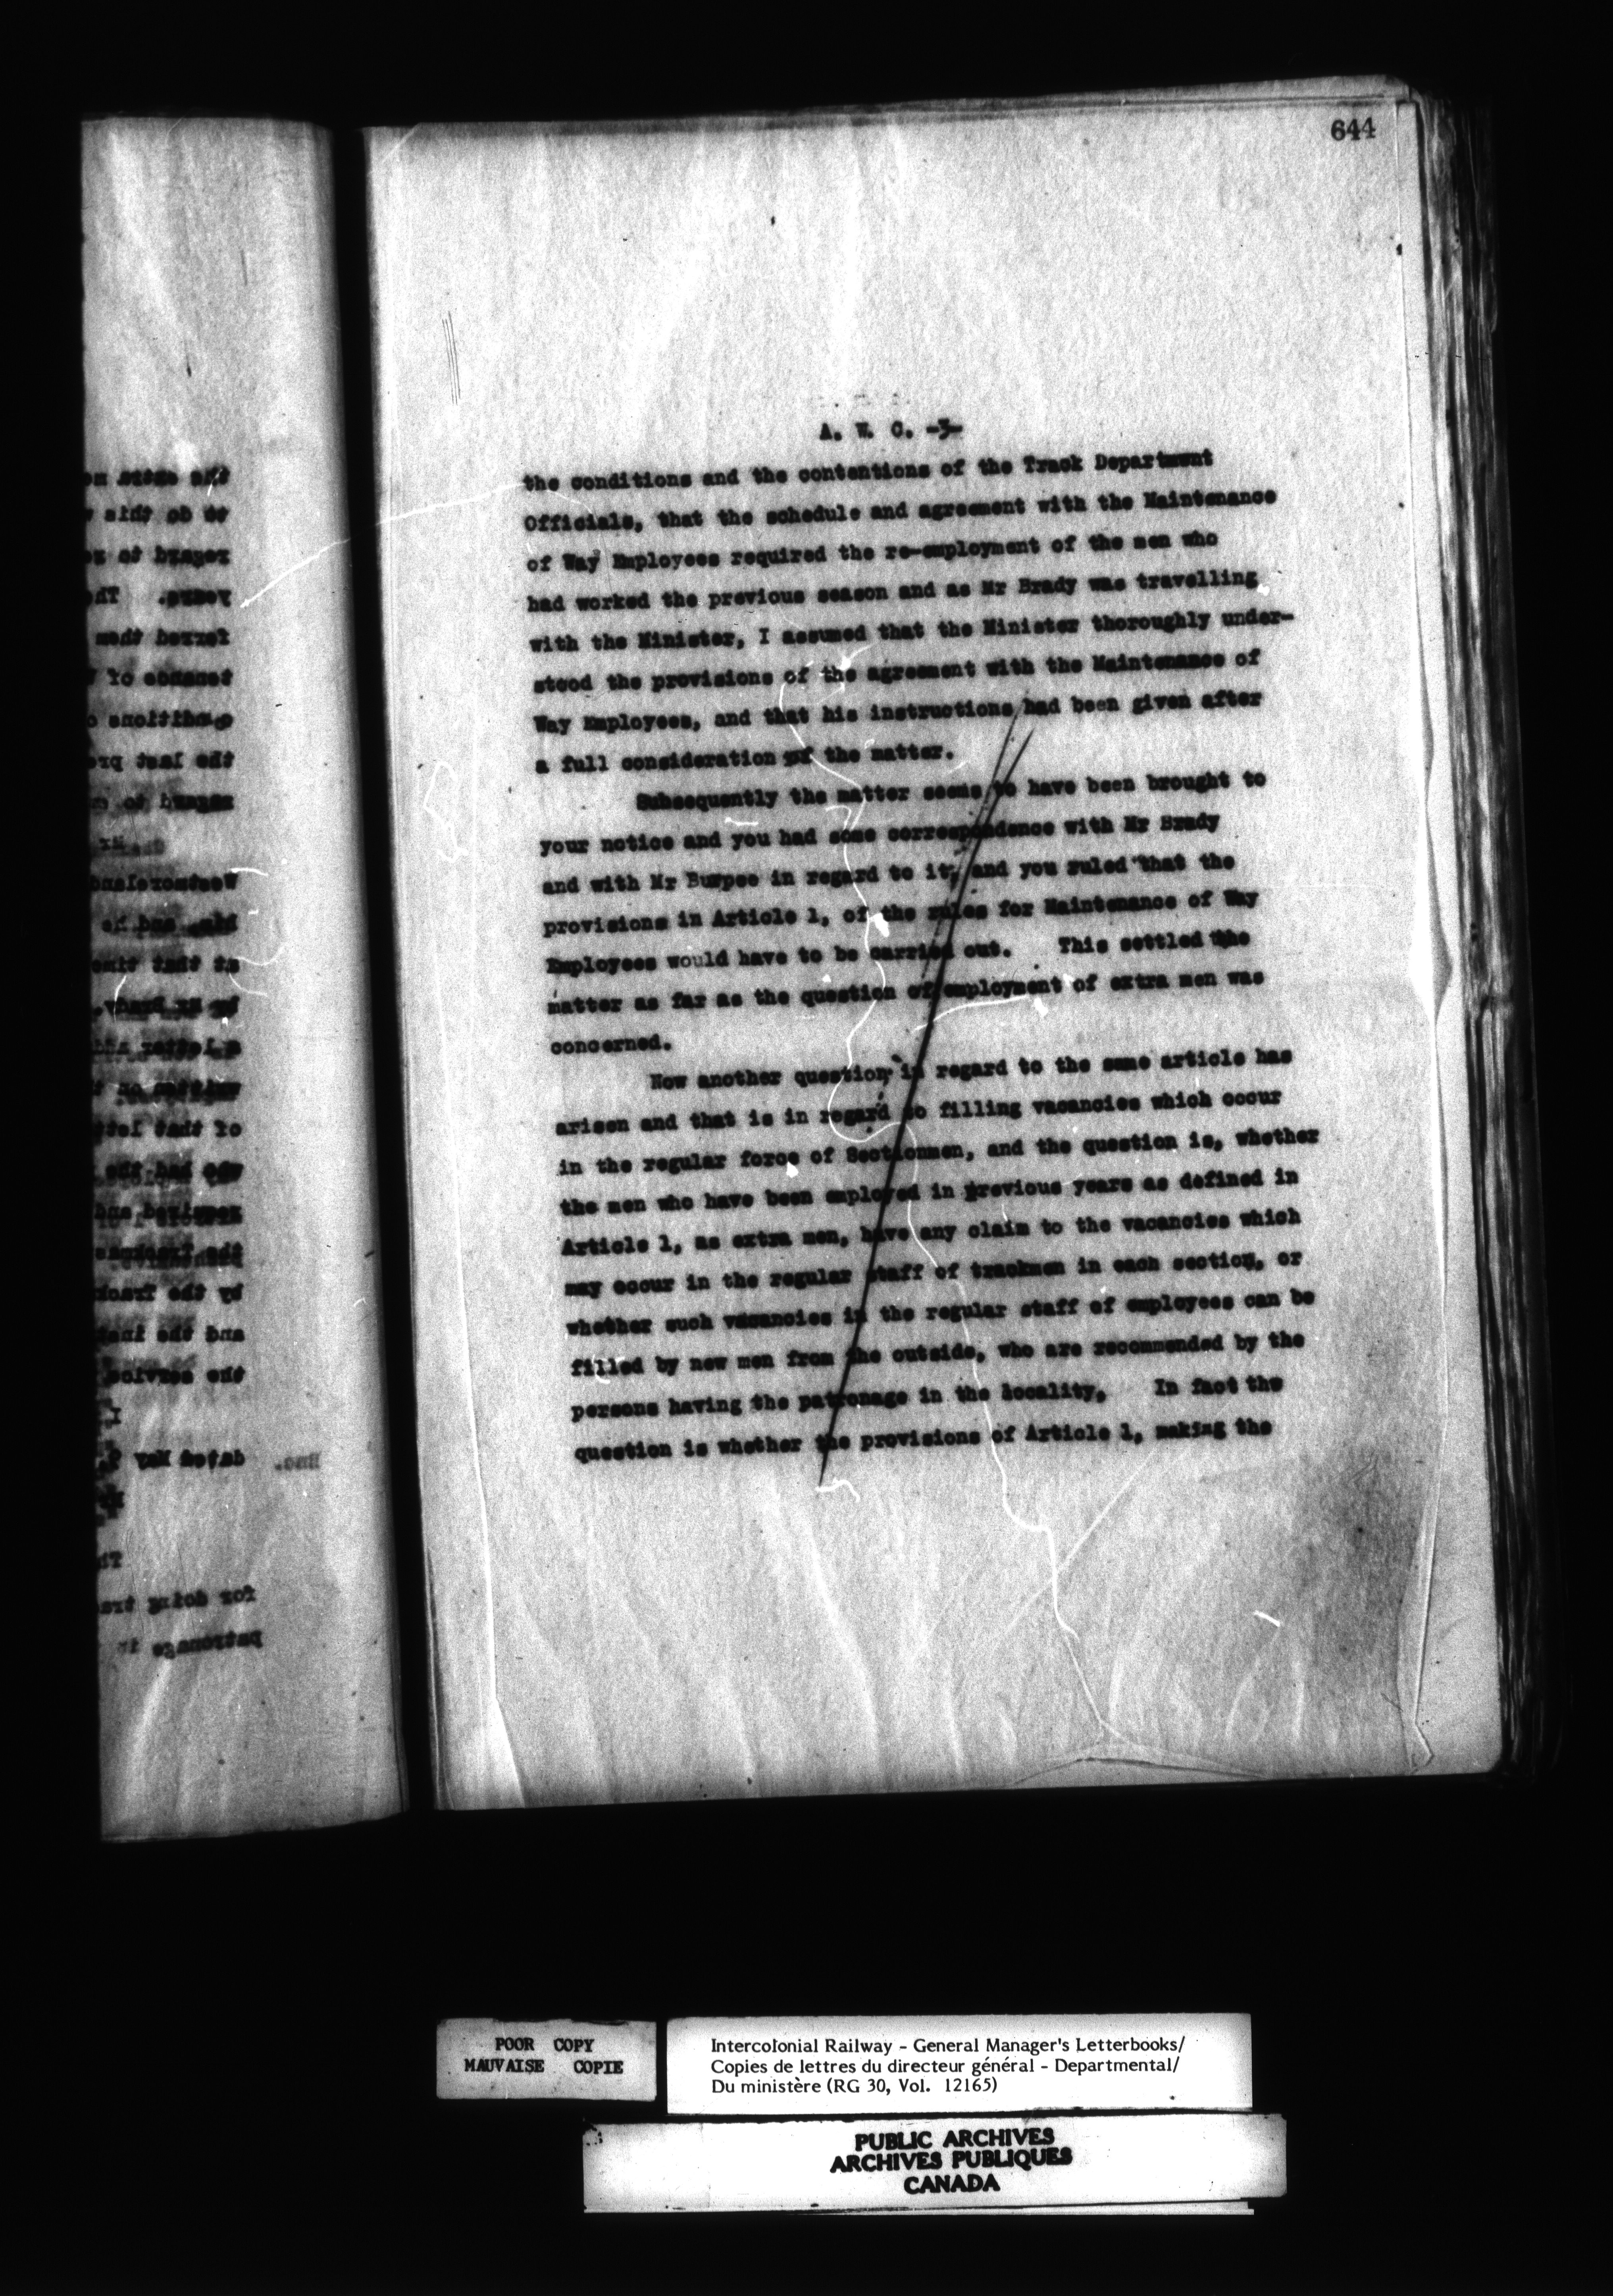 644
A. W. C. -3-
the conditions and the contentions of the Track Department
Officials, that the schedule and agreement with the Maintenance
of Way Employees required the re-employment of the men who
had worked the previous season and as Mr Brady was travelling
with the Minister, I assumed that the Minister thoroughly under-
stood the provisions of the agreement with the Maintenance of
Way Employees, and that his instructions had been given after
a full consideration of the matter.
Subsequently the matter seems to have been brought to
your notice and you had some correspondence with Mr Brady
and with Mr Burpee in regard to it, and you ruled that the
provisions in Article 1, of the rules for Maintenance of Way
Employees would have to be carried out. This settled the
matter as far as the question of employment of extra men was
concerned.
Now another question in regard to the same article has
arisen and that is in regard to filling vacancies which occur
in the regular force of Sectionmen, and the question is, whether
the men who have been employed in previous years as defined in
Article 1, as extra men, have any claim to the vacancies which
may occur in the regular staff of trackmen in each section, or
whether such vacancies in the regular staff of employees can be
filled by new men from the outside, who are recommended by the
persons having the patronage in the locality. In fact the
question is whether the provisions of Article 1, making the
POOR COPY
MAUVAISE COPIE
Intercolonial Railway - General Manager's Letterbooks/
Copies de lettres du directeur général - Departmental/
Du ministère (RG 30, Vol. 12165)
PUBLIC ARCHIVES
ARCHIVES PUBLIQUES
CANADA